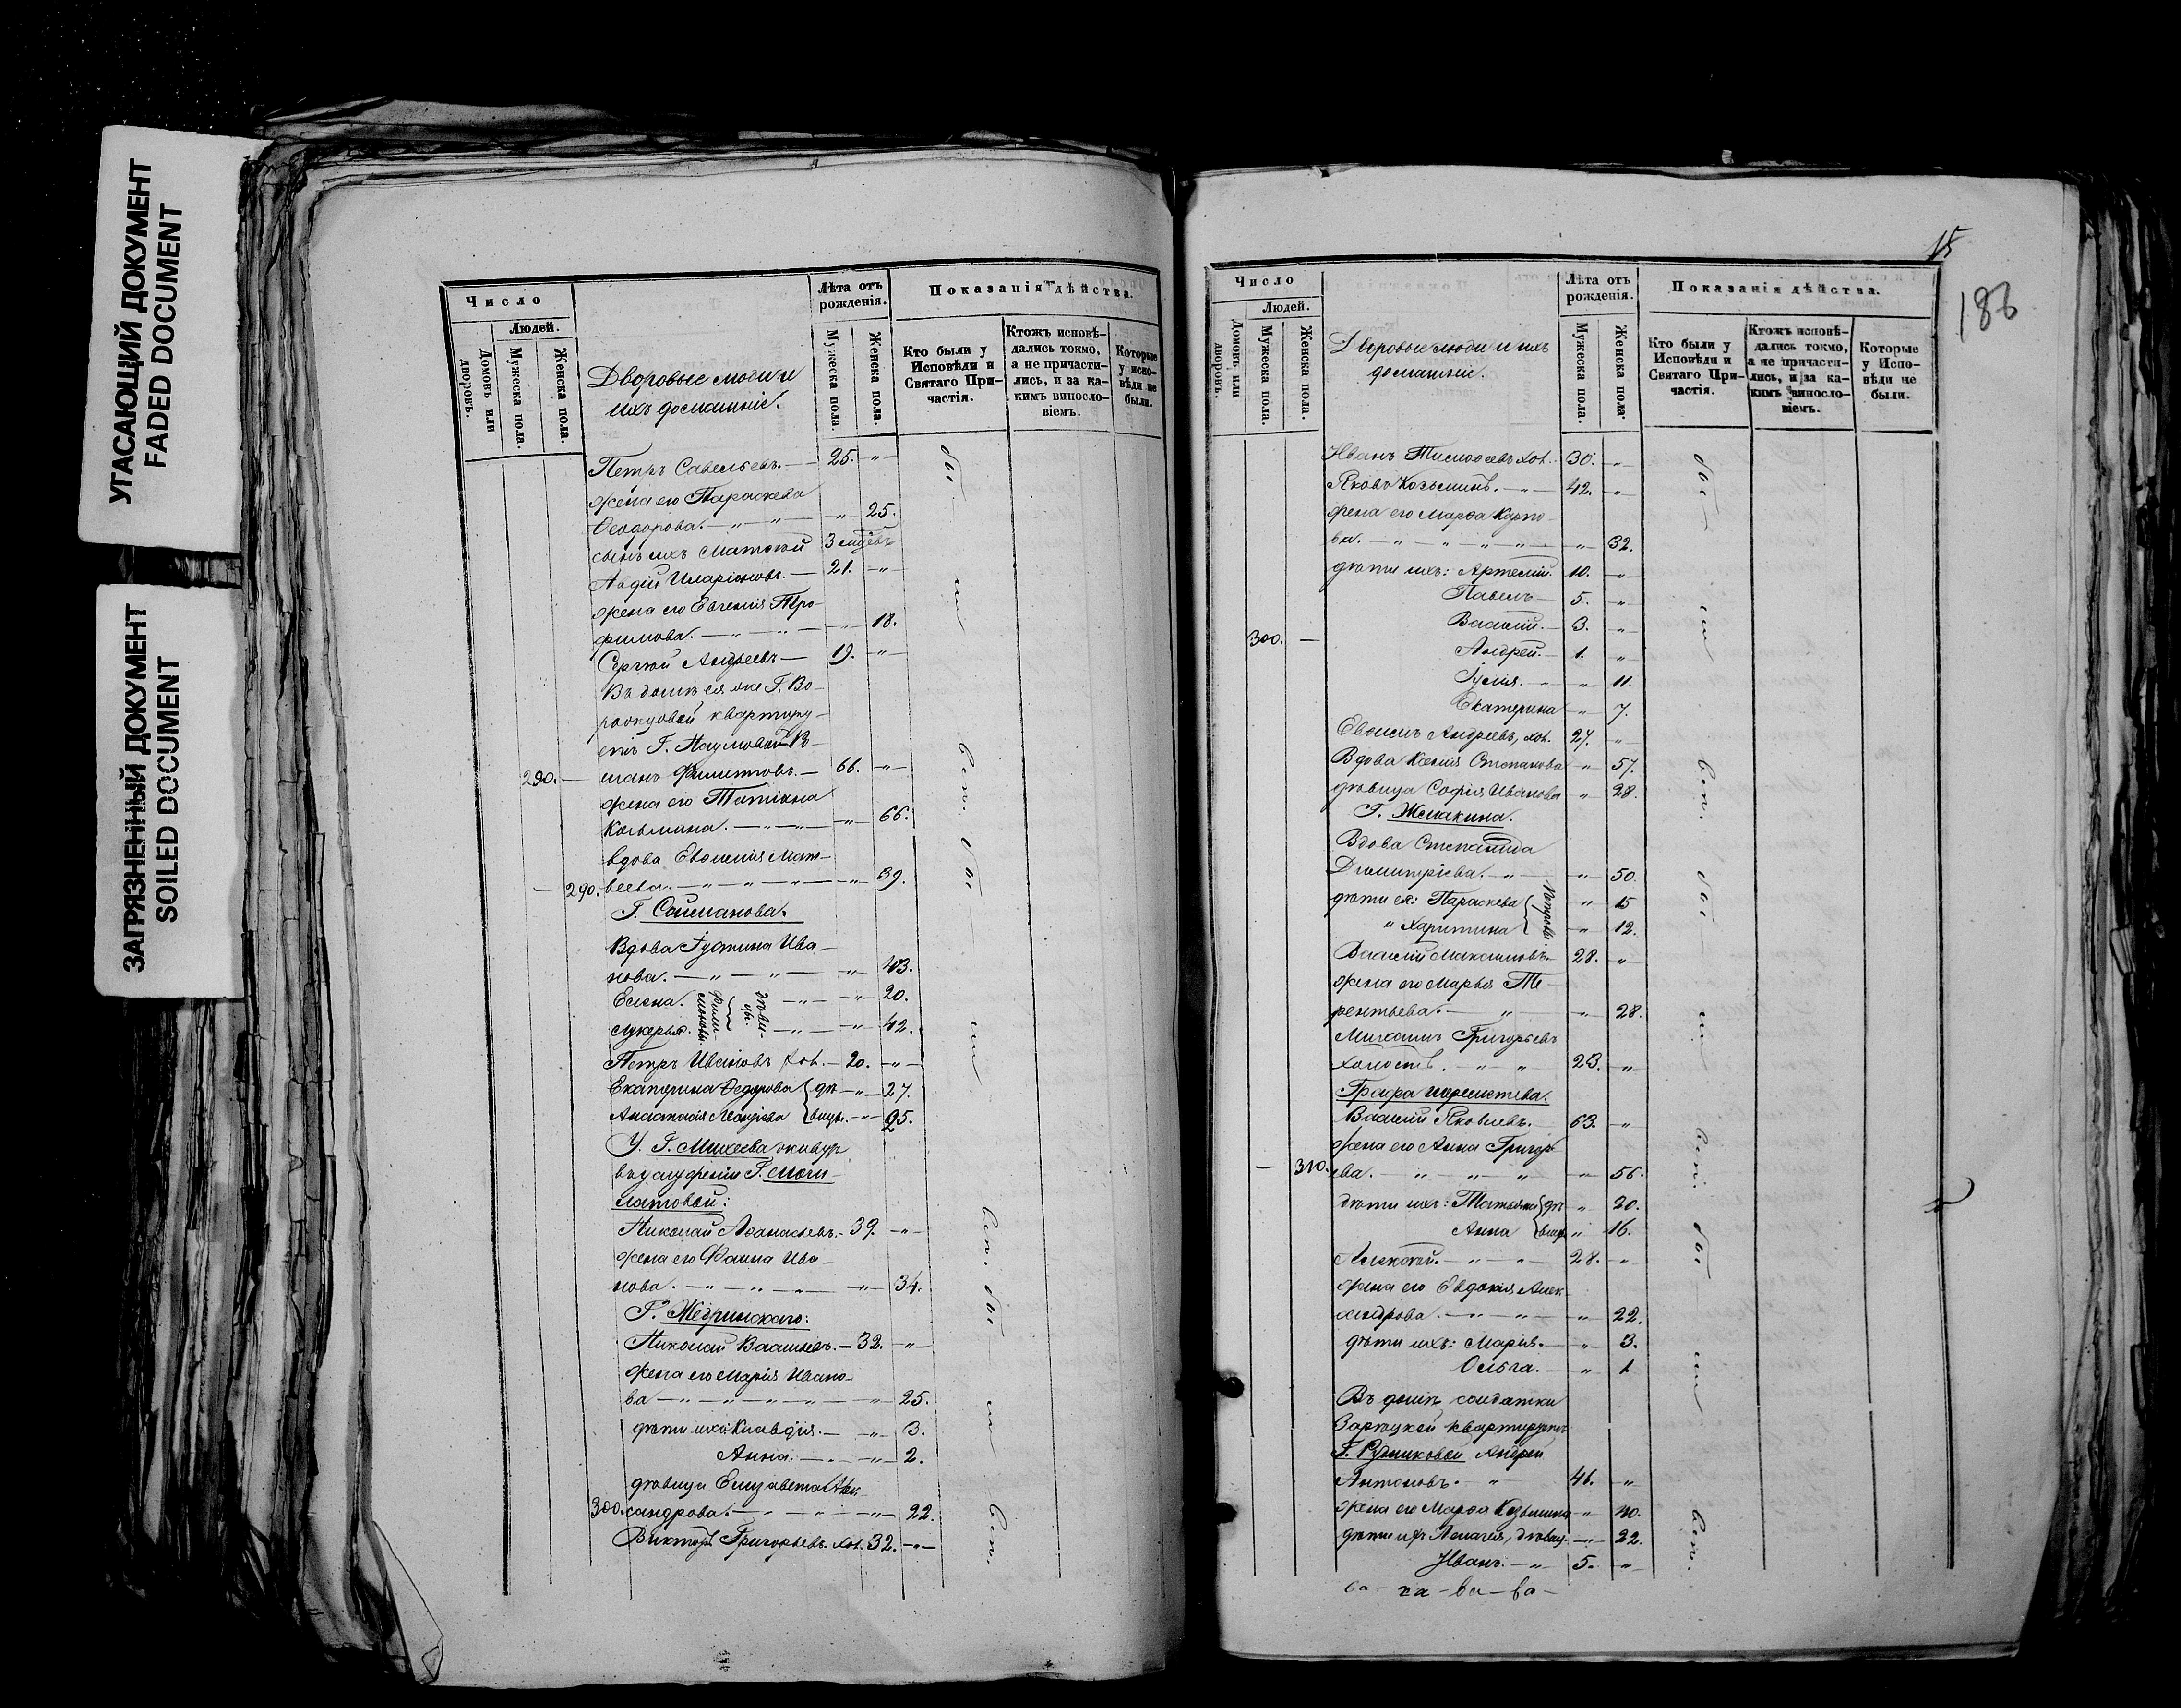 УГАСАЮЩИЙ ДОКУМЕНТ
FADED DOCUMENT
ЗАГРЯЗНЕННЫЙ ДОКУМЕНТ
SOILED DOCUMENT
Число
Людей.
Домовъ или дворовъ.
Мужеска пола.
Женска пола.
Дворовые люди и
ихъ домашніе.
Лѣта отъ рожденія.
Мужеска пола.
Женска пола.
Показанія дѣйства.
Кто были у Исповѣди и Святаго Причастія.
Ктожъ исповѣдались токмо, а не причастились, и за какимъ винословіемъ.
Которые у исповѣди не были.
Петръ Савельевъ. — 25. "
жена его Параскева
Ѳеодорова. — " — " — " 25.
сынъ ихъ Матѳей 3 мцѣвъ
Авдій Иларіоновъ. — 21. "
жена его Евгенія Тро-
фимова. — " — " — 18.
Сергѣй Андреевъ — 19. "
Въ домѣ ея же Г. Во-
квартиру-
етъ Г. Наумовой
290. — Филиповъ. — 66. "
жена его Татіана
Козьмина. — " — " — 66.
вдова Евѳимія Мат-
— 290. веева. — " — " — " — 39.
Г. Соймонова.
Вдова Іустина Ива-
нова. — " — " — " 43.
Елена. — " — " 20.
Лукерья. — " — " 42.
Филимоновы. дѣвицы.
Петръ Ивановъ хол. — 20. "
Екатерина Ѳедорова дѣ — " 27.
Анастасія вицы. — " 25.
У Г. Михеева живутъ
въ услуженіи Г.
Николай Аѳанасьевъ. — 39. "
жена его Фаина Ива-
нова. — " — " — " 34.
Г. Жедринскаго:
Николай Васильевъ. — 32. "
жена его Марія Ивано-
ва — " — " — " 25.
дѣти ихъ: Клавдія. — " 3.
Анна. — " 2.
дѣвица Елизавета Алек-
300. сандрова. — " — " 22.
Викторъ Григорьевъ. хол. 32. "
обо
ни
вел.
обо
ни
вел.
обо
ни
вел.
15
186
Число
Людей.
Домовъ или дворовъ.
Мужеска пола.
Женска пола.
Дворовые люди и ихъ
домашніе.
Лѣта отъ рожденія.
Мужеска пола.
Женска пола.
Показанія дѣйства.
Кто были у Исповѣди и Святаго Причастія.
Ктожъ исповѣдались токмо, а не причастились, и за какимъ винословіемъ.
Которые у Исповѣди не были.
Иванъ Тимоѳеевъ хол. 30. "
Яковъ Козьминъ. — " 42. "
жена его Марѳа Карпо-
ва. — " — " — " 32.
дѣти ихъ: Артемій. 10. "
Павелъ — 5. "
Василій. — 3. "
300. — Андрей. — 1. "
Іулія. — " 11.
Екатерина " 7.
Евѳимъ Андреевъ, хол. 27. "
Вдова Ксенія Степанова " 57.
дѣвица Софія Иванова " 28.
Г. Жмакина.
Вдова Степанида
Димитріева. — " " 50.
дѣти ея: Параскева " 15
" Харитина " 12.
Петровы.
Василій Максимовъ. 28. "
жена его Марья Те-
рентьева. — " " 28.
Михаилъ Григорьевъ
холостъ. — " " 23. "
Графа Шереметева.
Василій Яковлевъ. 63. "
жена его Анна Григорь-
— 310. ева. — " " " 56.
дѣти ихъ: Татьяна дѣ " 20.
Анна вицы " 16.
Алексѣй. — " " 28. "
жена его Евдокія Алек-
сандрова. — " " " 22.
дѣти ихъ: Марія. — " 3.
Ольга. — " 1
Въ домѣ солдатки
Зарѣцкой квартируетъ
Г. Рудниковой Андрей
Антоновъ. — " 41. "
жена его Марѳа Козьмина " 40.
дѣти ихъ Пелагія, дѣвиц. — " 22.
Иванъ. — " 5. "
ва – ва – ва – ва –
обо
ни
вел.
обо
ни
вел.
обо
ни
вел.